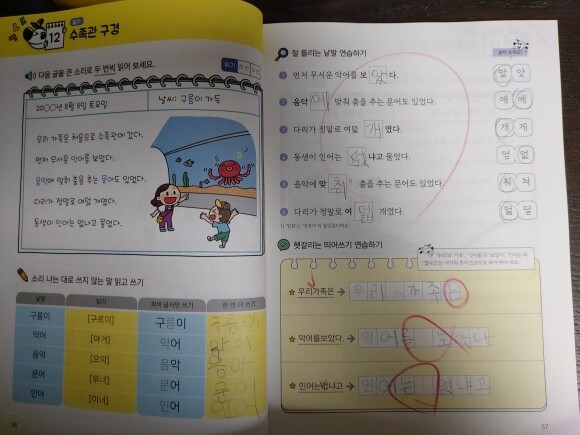 12
읽기
수족관 구경
다음 글을 큰 소리로 두 번씩 읽어 보세요.
읽기
20○○년 8월 8일 토요일
날씨: 구름이 가득
우리 가족은 처음으로 수족관에 갔다.
먼저 무서운 악어를 보았다.
음악에 맞춰 춤을 추는 문어도 있었다.
다리가 정말로 여덟 개였다.
동생이 인어는 없냐고 물었다.
소리 나는 대로 쓰지 않는 말 읽고 쓰기
낱말 읽기 회색 글자만 쓰기 한 번 더 쓰기
구름이 [구르미] 구름이 구름이
악어 [아거] 악어 악어
음악 [으막] 음악 음악
문어 [무너] 문어 문어
인어 [이너] 인어 인어
36
잘 틀리는 낱말 연습하기
1 먼저 무서운 악어를 보 았 다. 았 앗
2 음악 에 맞춰 춤을 추는 문어도 있었다. 애 에
3 다리가 정말로 여덟 개 였다. 개 게
4 동생이 인어는 없 냐고 물었다. 업 없
5 음악에 맞 춰 춤을 추는 문어도 있었다. 춰 쳐
6 다리가 정말로 여 덟 개였다.
헷갈리는 띄어쓰기 연습하기
우리가족은 우리 가족은
악어를보았다. 악어를 보았다
인어는없냐고 인어는 없냐고
37